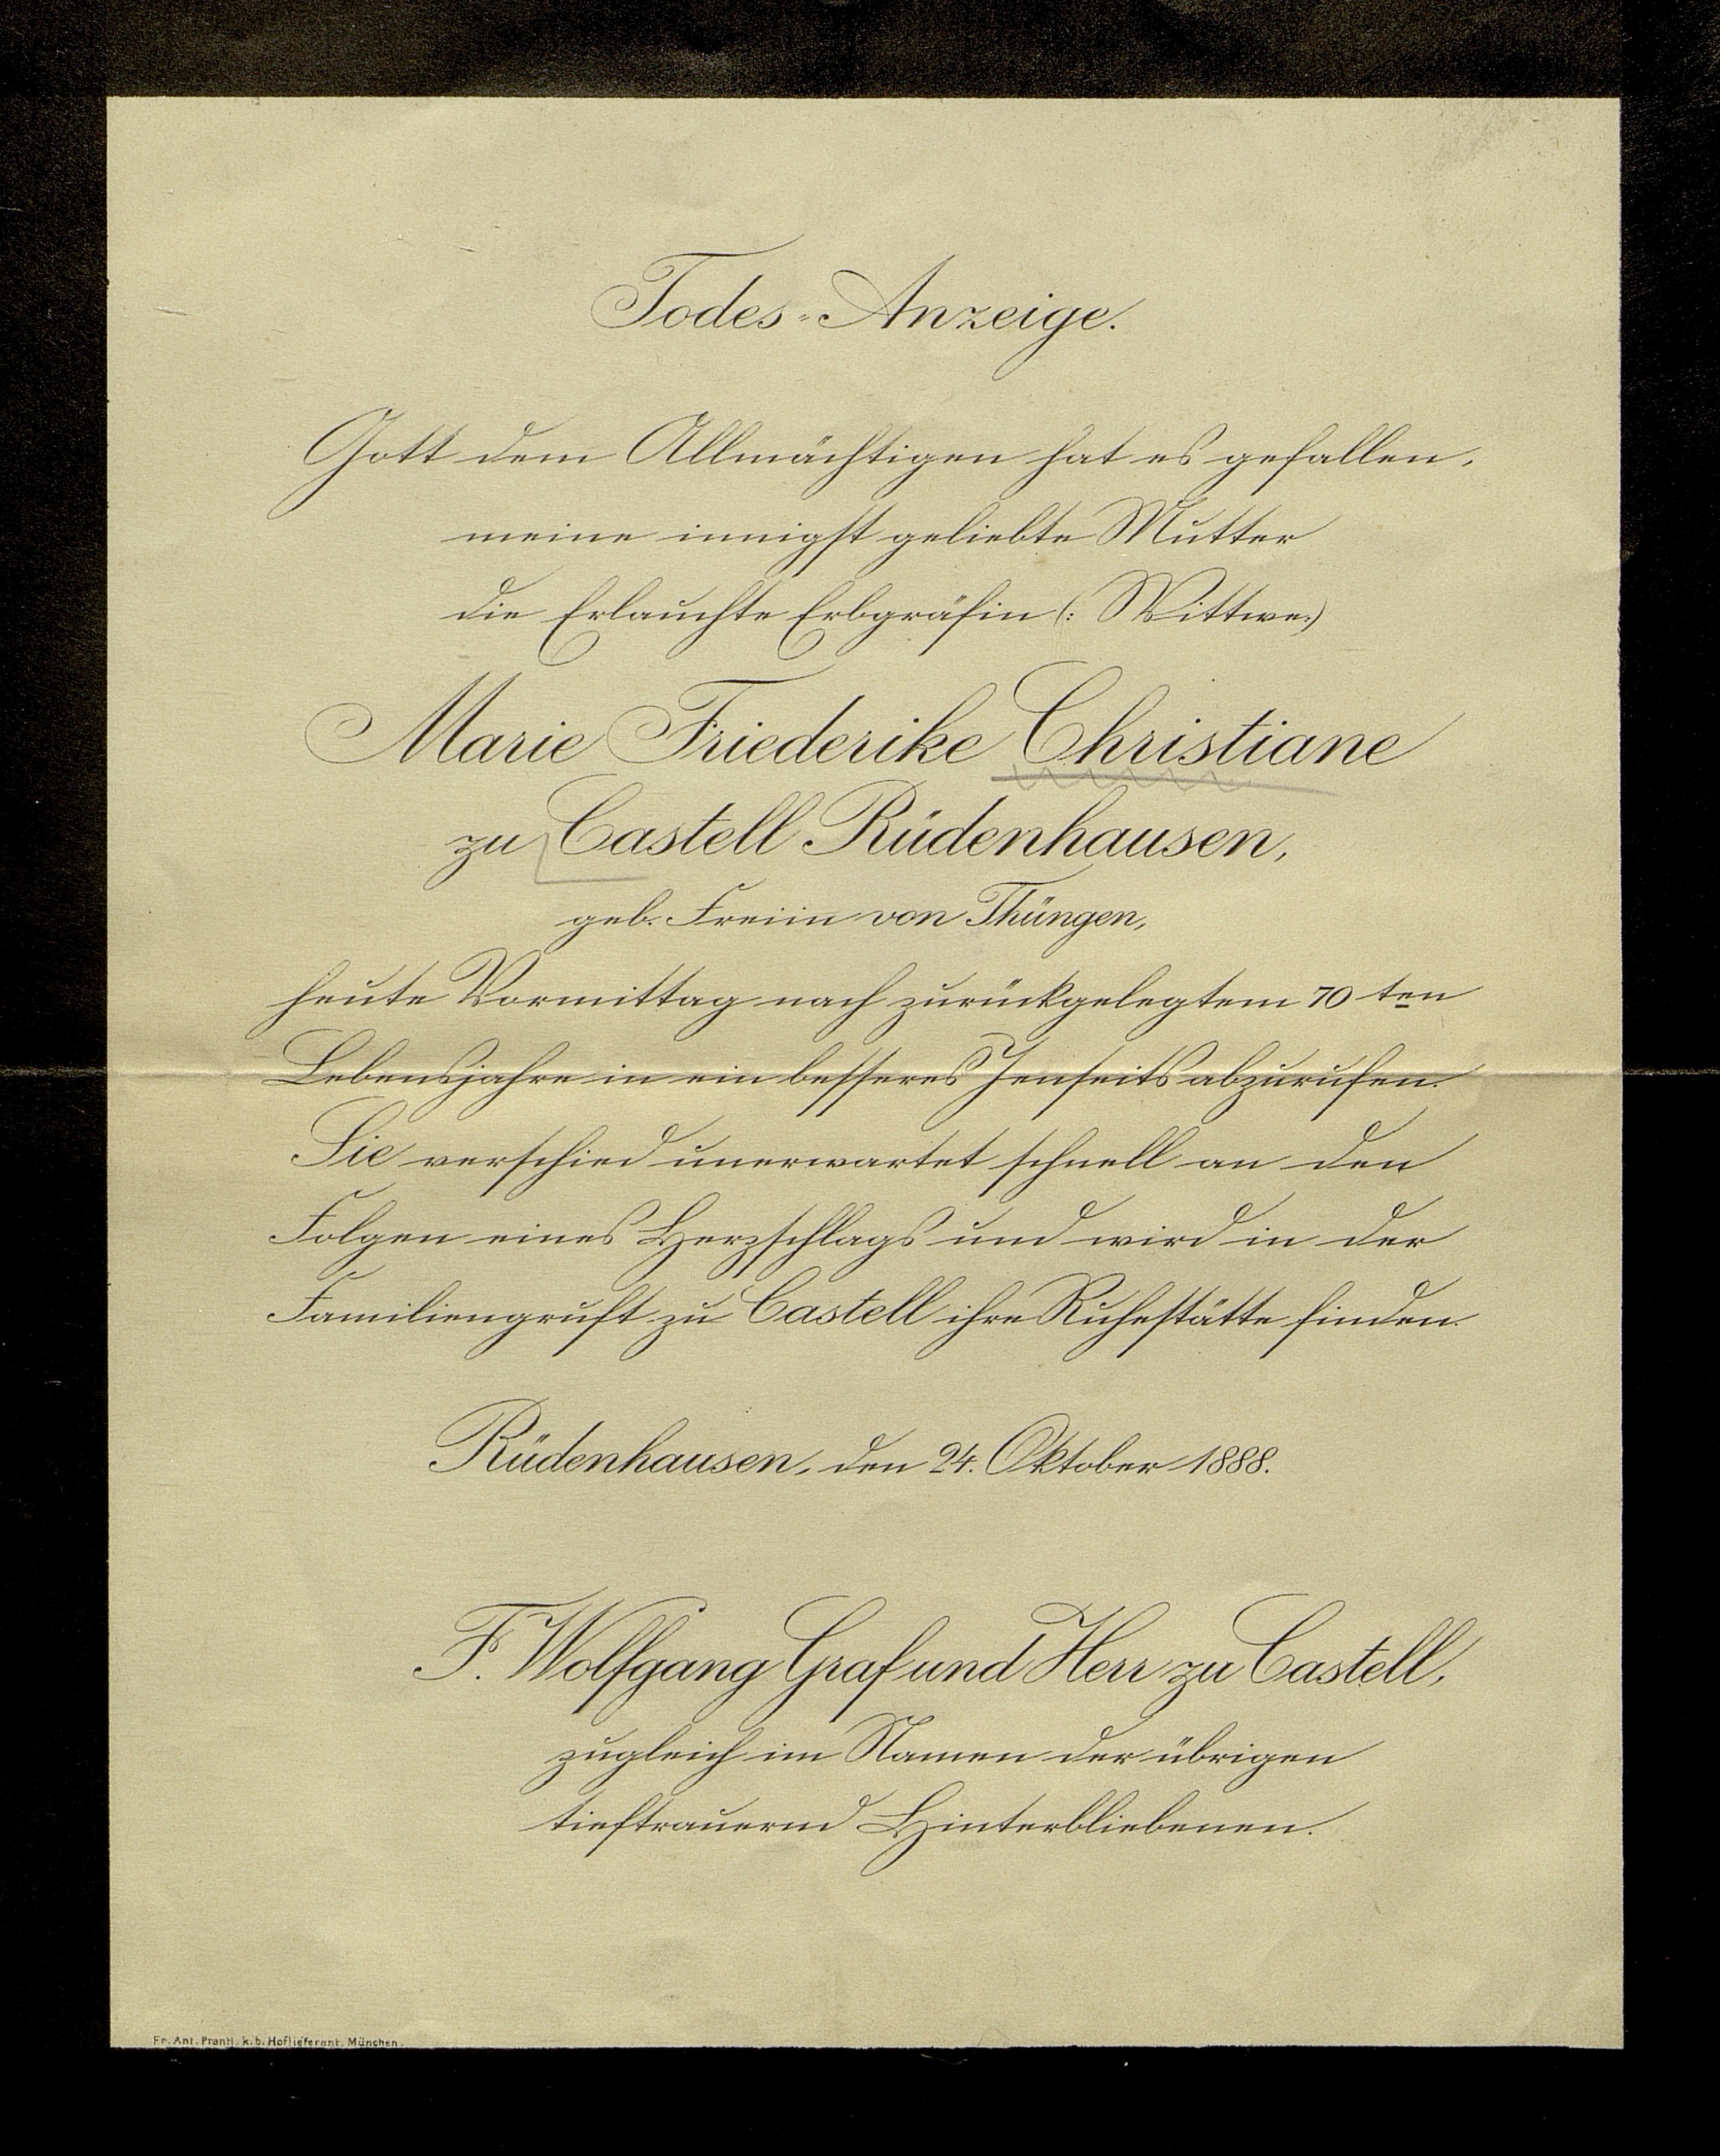 Todes-Anzeige.
Gott dem Allmächtigen hat es gefallen,
meine innigst geliebte Mutter
die Erlauchte Erbgräfin (: Wittwe:)
Marie Friederike Christiane
zu Castell Rüdenhausen,
geb. Freiin von Thüngen,
heute Vormittag nach zurückgelegtem 70 ten
Lebensjahre in ein besseres Jenseits abzurufen.
Sie verschied unerwartet schnell an den
Folgen eines Herzschlags und wird in der
Familiengruft zu Castell ihre Ruhestätte finden.
Rüdenhausen, den 24. Oktober 1888.
F. Wolfgang Graf und Herr zu Castell,
zugleich im Namen der übrigen
tieftrauernd Hinterbliebenen.
Fr. Ant. Prantl, k. b. Hoflieferant, München.